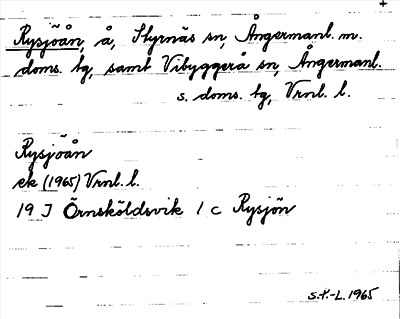 Rysjöån, å, Styrnäs sn, Ångermanl. m.
doms. tg, samt Vibyggerå sn, Ångermanl.
s. doms. tg, Vrnl. l.
Rysjöån
ek (1965) Vrnl. l.
19 J Örnsköldsvik 1 c Rysjön
S.F.-L. 1965